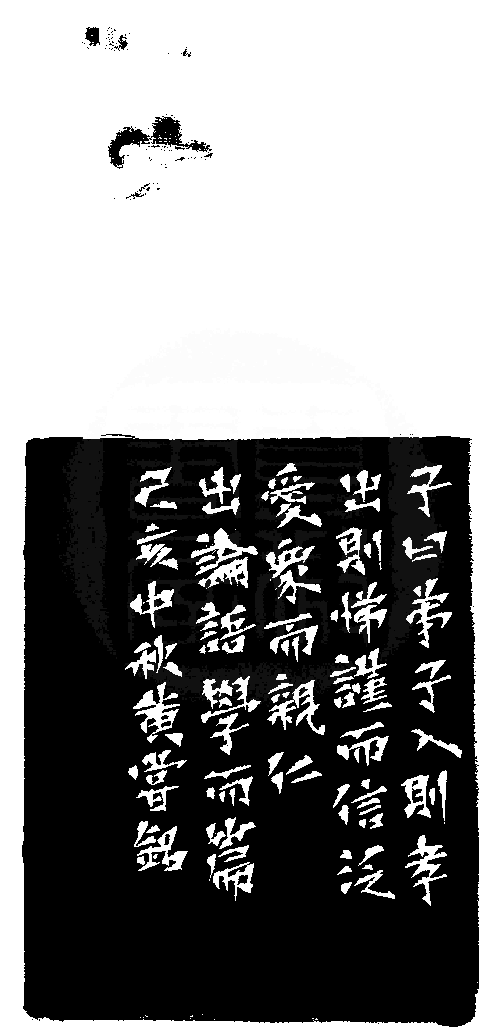 子曰弟子入則孝
出則悌謹而信泛
愛眾而親仁
出論語學而篇
己亥中秋黄嘗銘